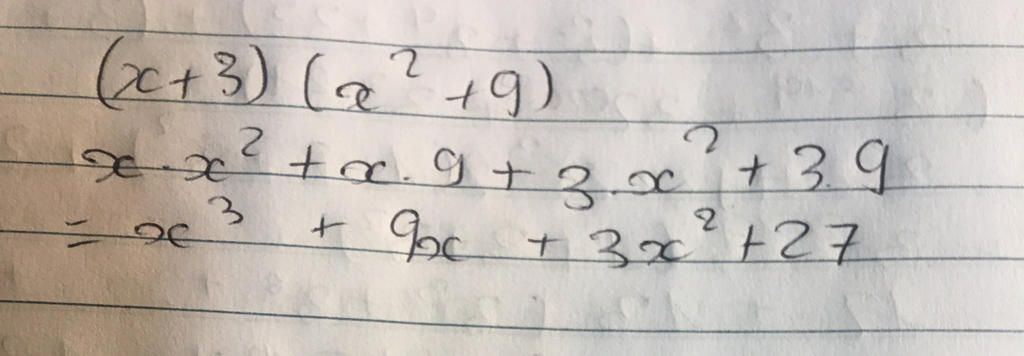 (x+3) (x² +9)
x·x² + x.9 + 3.x² + 3.9
= x³ + 9x + 3x² +27